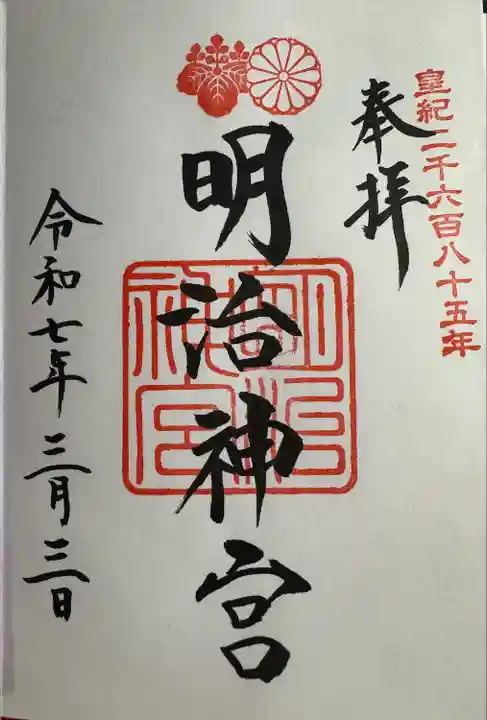 皇紀二千六百八十五年
奉拝
明治神宮
明治神宮
令和七年三月三日